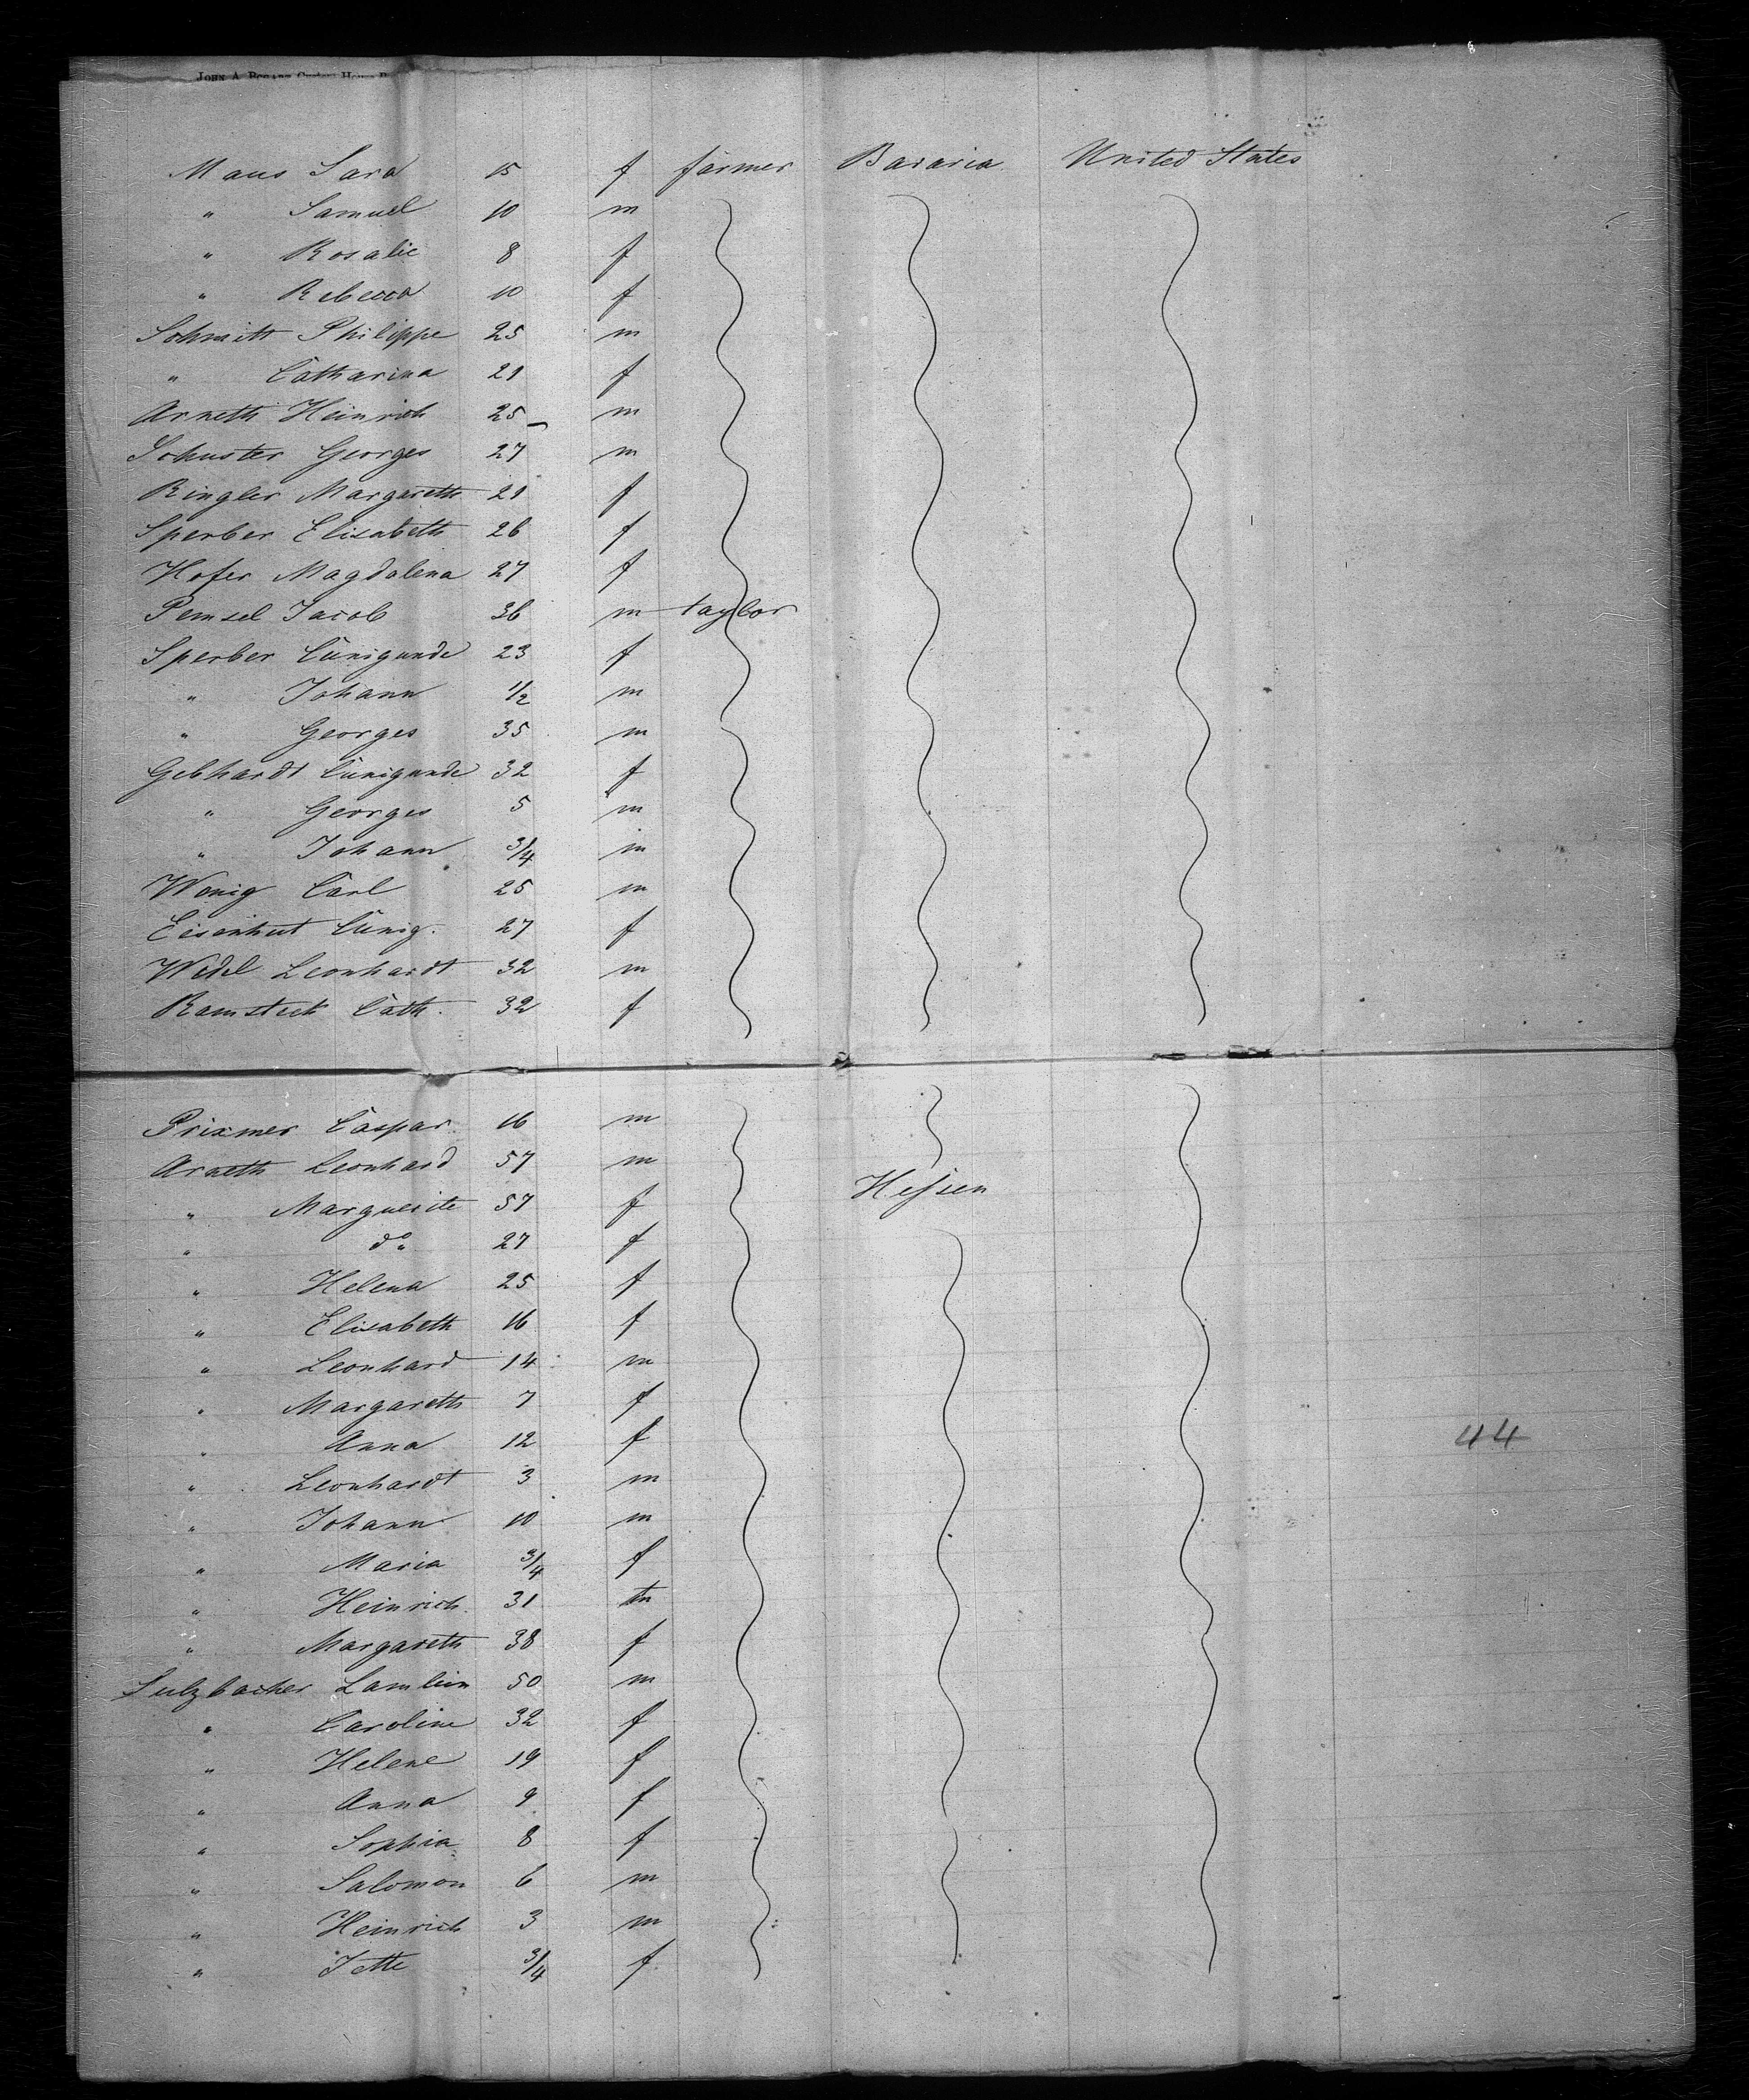 Maus Sara 15 f farmer Bavaria United States
" Samuel 10 m
" Rosalie 8 f
" Rebecca 10 f
Schmitt Philippe 25 m
" Catharina 21 f
Arneth Heinrich 25 m
Schuster Georges 27 m
Ringler Margareth 21 f
Sperber Elisabeth 26 f
Hofer Magdalena 27 f
Pemsel Jacob 36 m taylor
Sperber Cunigunde 23 f
" Johann 1/2 m
" Georges 35 m
Gebhardt Cunigunde 32 f
" Georges 5 m
" Johann 3/4 m
Wonig Carl 25 m
Eisenhut Cunig. 27 f
Wedel Leonhardt 32 m
Ramsteck Cath. 32 f
Prixmer Caspar. 16 m
Arneth Leonhard 57 m
" Marguerite 57 f Hessen
" do 27 f
" Helena 25 f
" Elisabeth 16 f
" Leonhard 14 m
" Margareth 7 f
" Anna 12 f 44
" Leonhardt 3 m
" Johann 10 m
" Maria 3/4 f
" Heinrich 31 m
" Margareth 38 f
Sulzbacher Lamlein 50 m
" Caroline 32 f
" Helene 19 f
" Anna 9 f
" Sophia 8 f
" Salomon 6 m
" Heinrich 3 m
" Jette 3/4 f